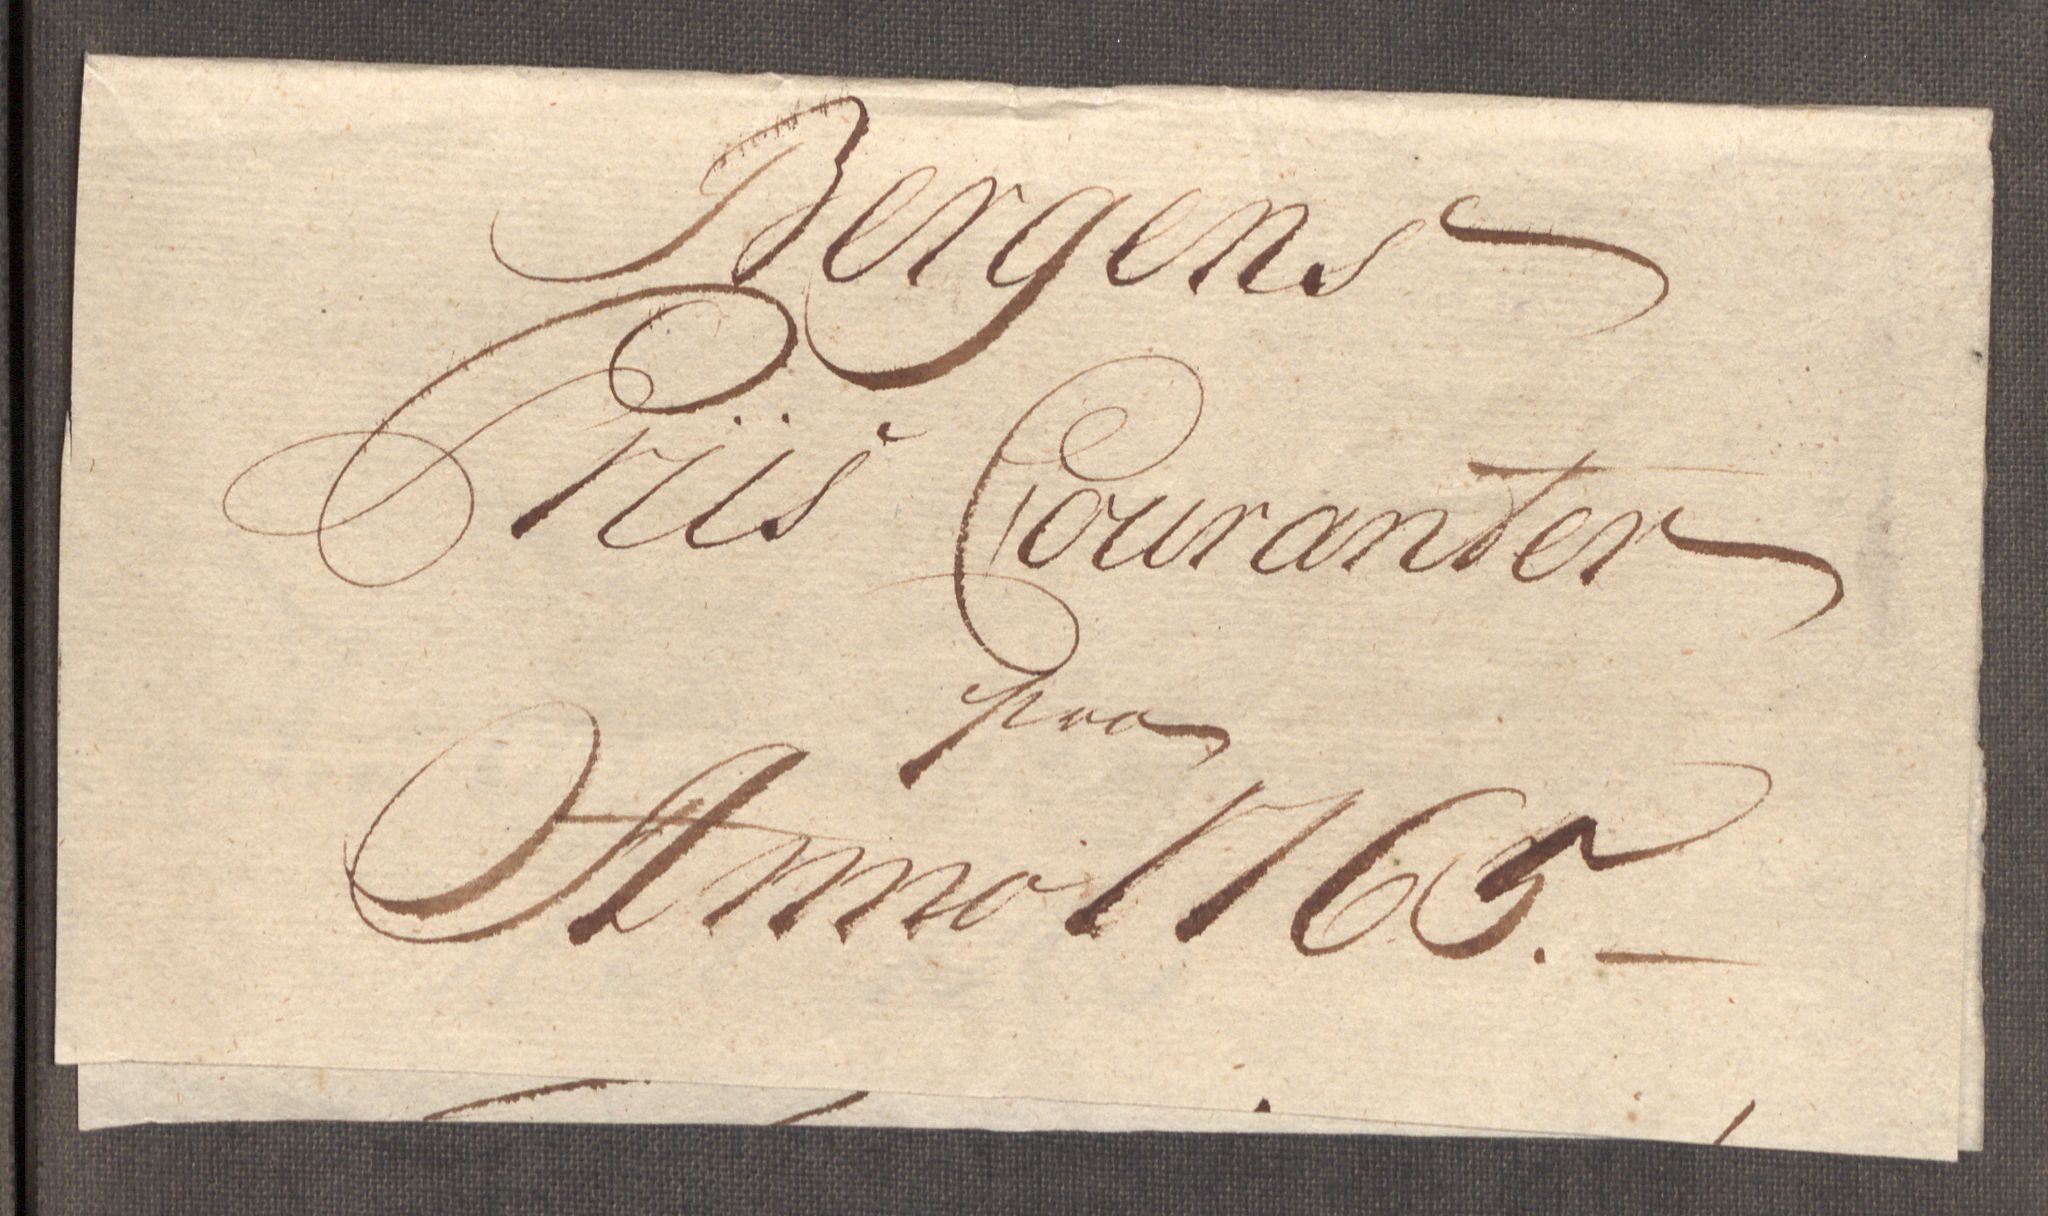 Bergens
Priis Couranter
paa
Anno 1765.